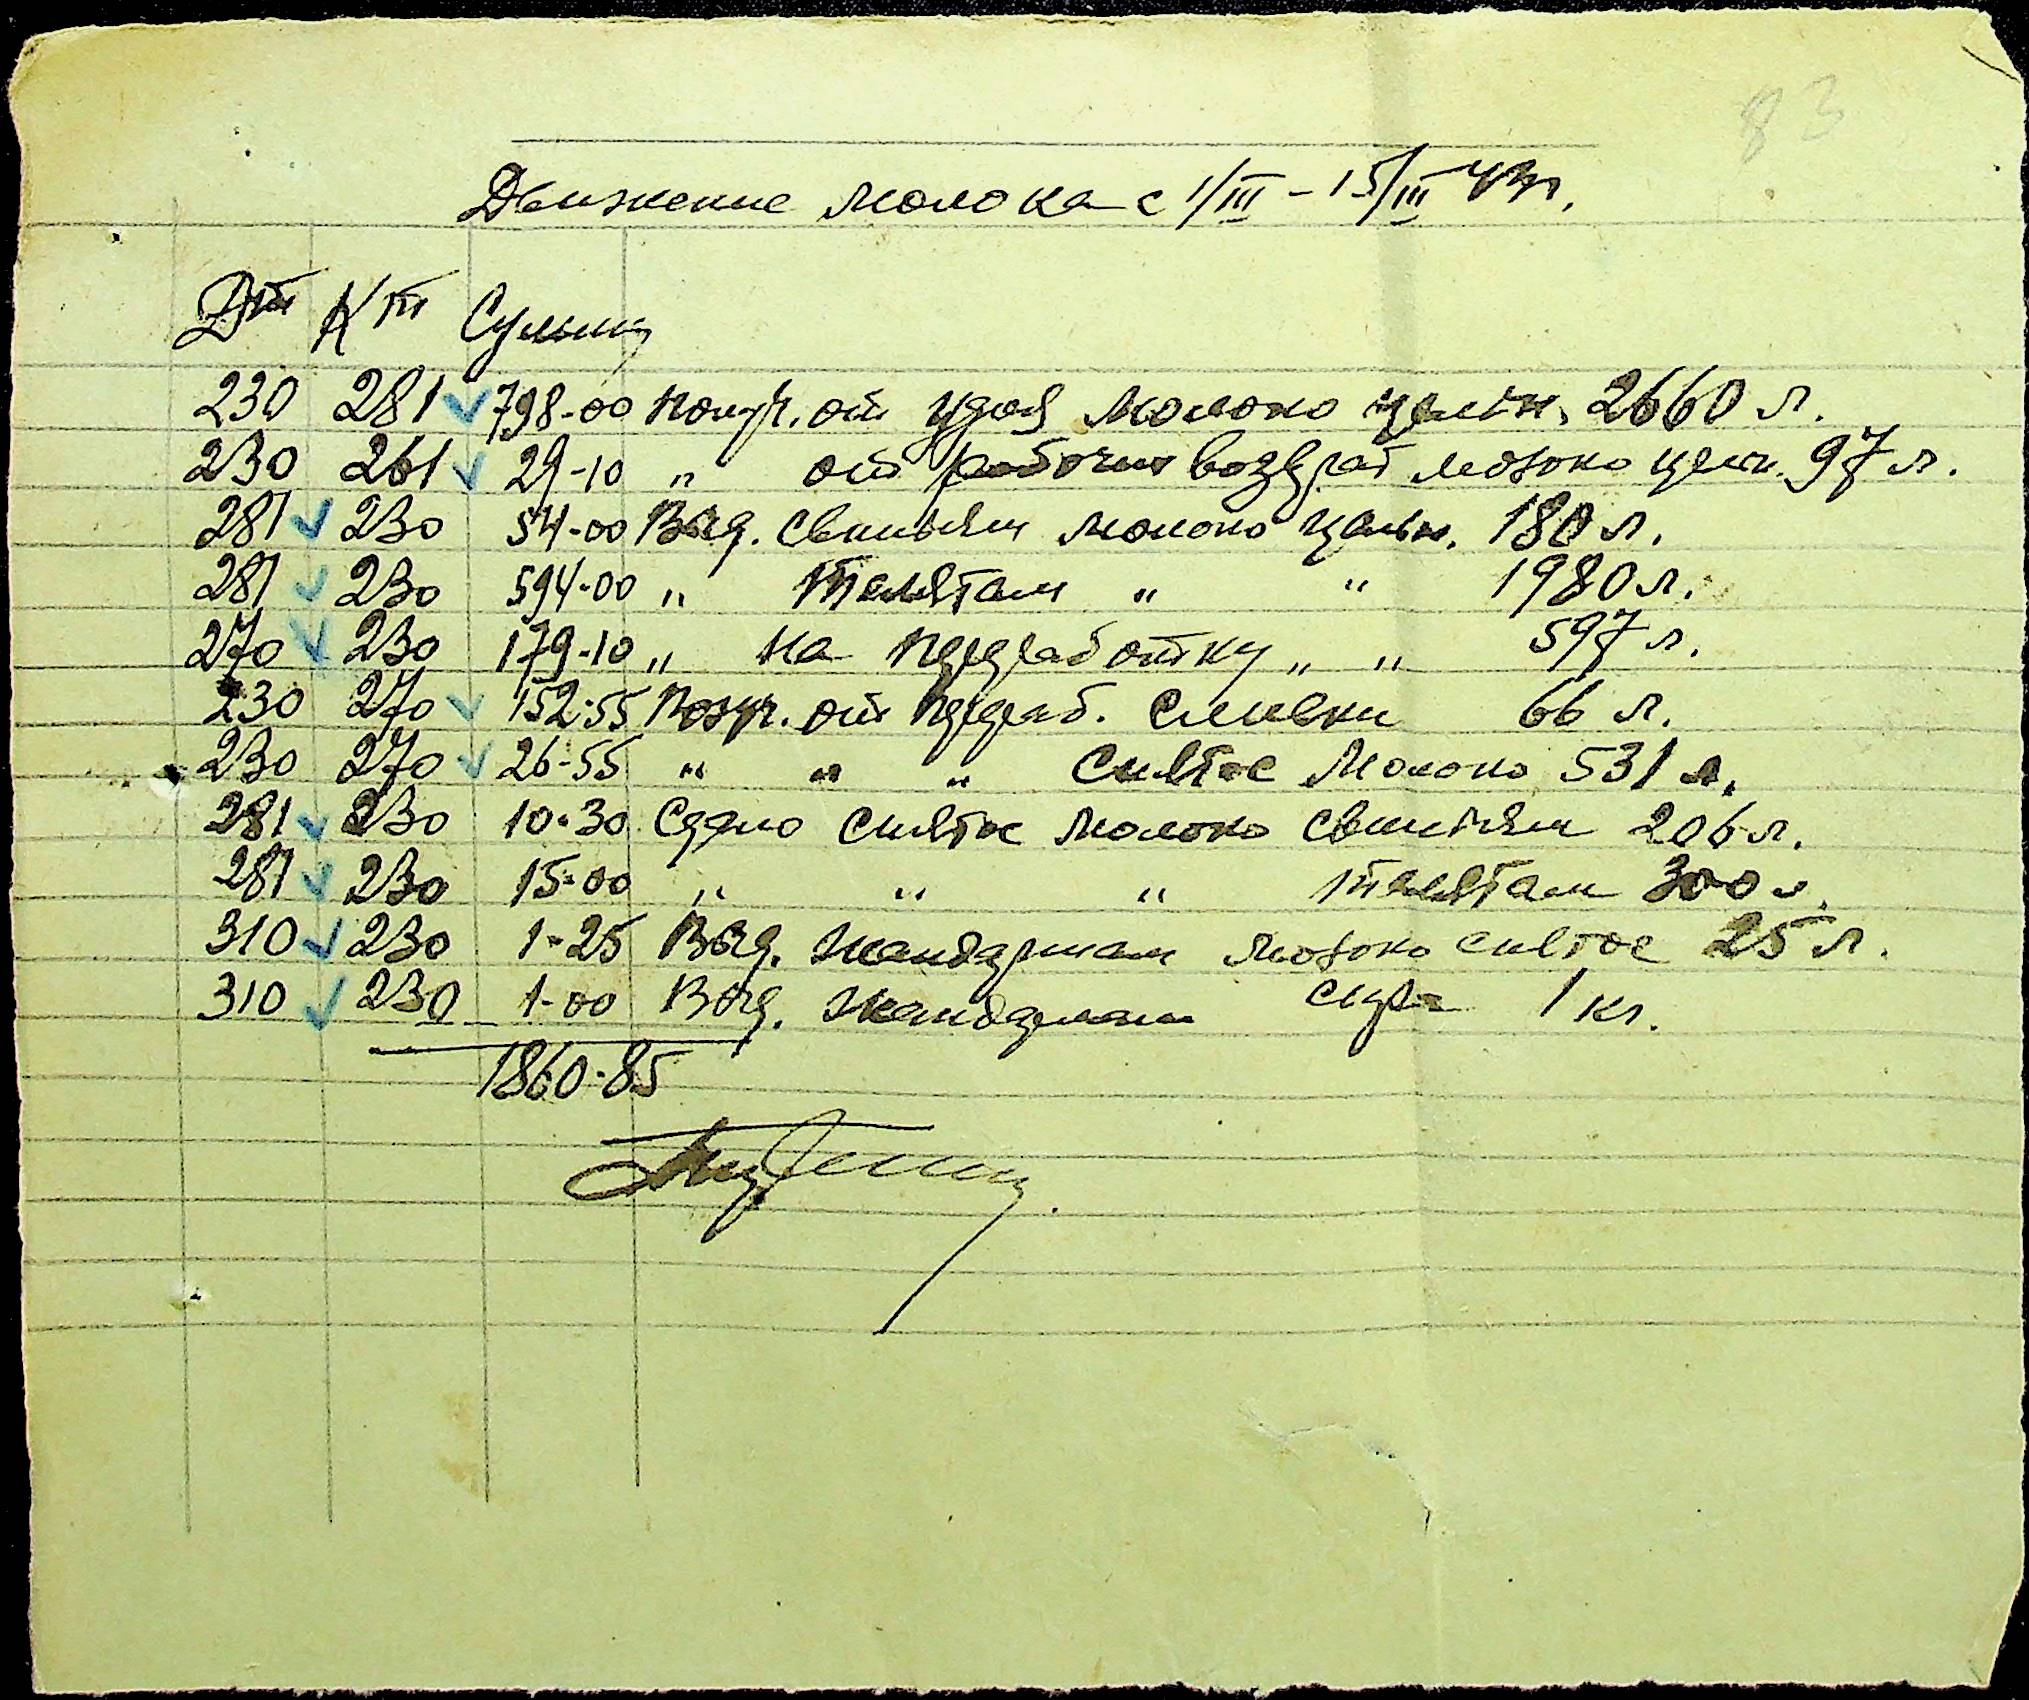 83
Движение молока с 1/III - 15/III 43г.
Дт Кт Суммы
230 281 798-00 Получ. от удоя молоко цельн. 2660 л.
230 261 29-10 " от рабочих возврат молоко цельн. 97 л.
281 230 54-00 Выд. свиньям молоко цельн. 180 л.
281 230 594-00 " телятам " " 1980 л.
270 230 179-10 " на переработку " " 597 л.
230 270 152-55 Получ. от перераб. сливки 66 л.
230 270 26-55 " " " снятое молоко 531 л.
281 230 10-30 Сдано снятое молоко свиньям 206 л.
281 230 15-00 " " " телятам 300 л.
310 230 1-25 Выд. жандармам молоко снятое 25 л.
310 230 1-00 Выд. жандармам сыра 1 кг.
1860-85